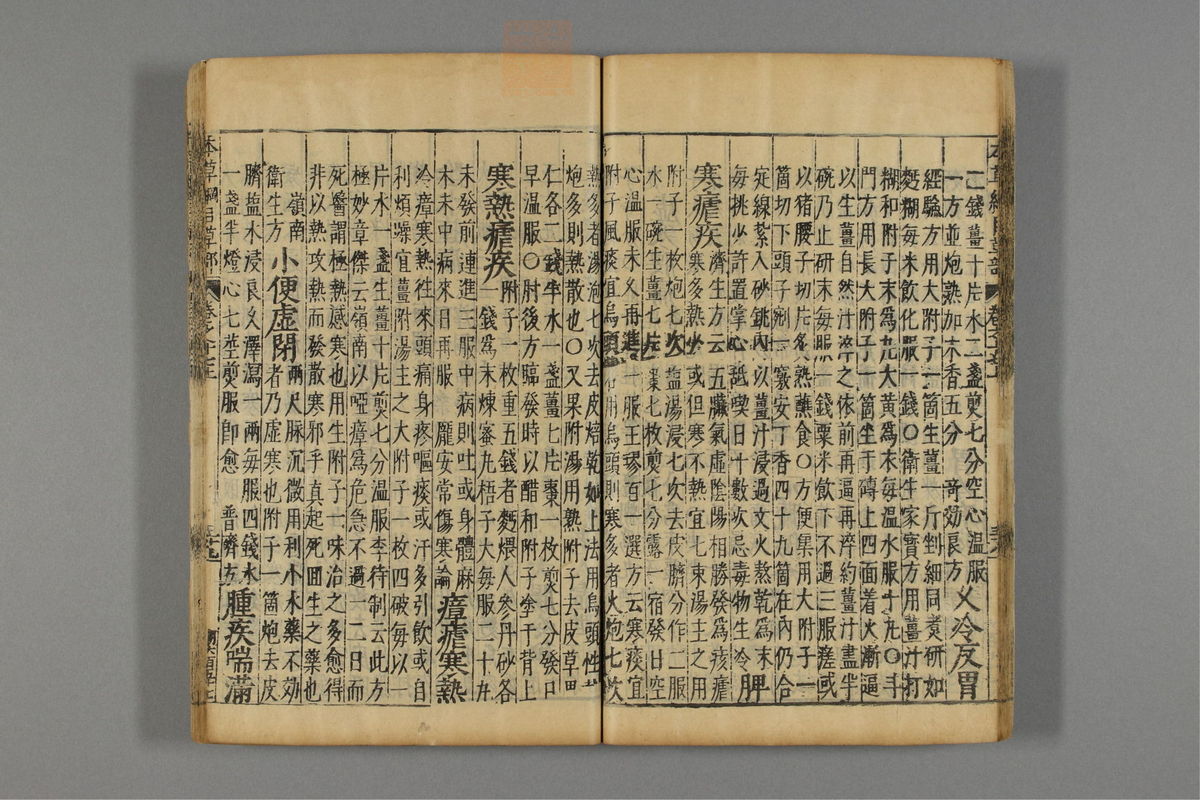 二錢薑十片水二盞煎七分空心溫服
一方並炮熟加木香五分 竒効良方 久冷反胃
經驗方用大附子一箇生薑一斤剉細同煑研如
麪糊每米飲化服一錢〇衛生家寶方用薑汁打
糊和附子末爲丸大黃爲衣每溫水服十丸〇斗
門方用長大附子一箇坐于磚上四面着火漸逼
以生薑自然汁淬之依前再逼再淬約薑汁盡半
碗乃止研末每服一錢粟米飲下不過三服瘥或
以猪腰子切片炙熟蘸食〇方便集用大附子一
箇切下頭子剜一竅安丁香四十九箇在內仍合
定線紮入砂銚內以薑汁浸過文火熬乾爲末
每挑少許置掌心䑛喫日十數次忌毒物生冷 脾
寒瘧疾 濟生方云五臟氣虛陰陽相勝發爲痎瘧
寒多熱少或但寒不熱宜七棗湯主之用
附子一枚炮七次鹽湯浸七次去皮臍分作二服
水一碗生薑七片棗七枚煎七分露一宿發日空
心溫服未久再進一服王璆百一選方云寒痰宜
附子風痰宜烏頭若用烏頭則寒多者火炮七次
熱多者湯泡七次去皮焙乾如上法用烏頭性熱
炮多則熱散也〇又果附湯用熟附子去皮草果
仁各二錢半水一盞薑七片棗一枚煎七分發日
早溫服〇肘後方臨發時以醋和附子塗于背上
寒熱瘧疾 附子一枚重五錢者麪煨人參丹砂各
一錢爲末煉蜜丸梧子大每服二十丸
未發前連進三服中病則吐或身體麻
木未中病來日再服 龐安常傷寒論 瘴瘧寒熱
冷瘴寒熱徃來頭痛身疼嘔痰或汗多引飲或自
利煩躁宜薑附湯主之大附子一枚四破每以一
片水一盞生薑十片煎七分溫服李待制云此方
極妙章傑云嶺南以啞瘴爲危急不過一二日而
死醫謂極熱感寒也用生附子一味治之多愈得
非以熱攻熱而發散寒邪乎真起死回生之藥也
嶺南
衛生方 小便虛閉 兩尺脉沉微用利小水藥不効
者乃虛寒也附子一箇炮去皮
臍鹽水浸良久澤瀉一兩每服四錢水
一盞半燈心七莖煎服卽愈 普濟方 腫疾喘滿